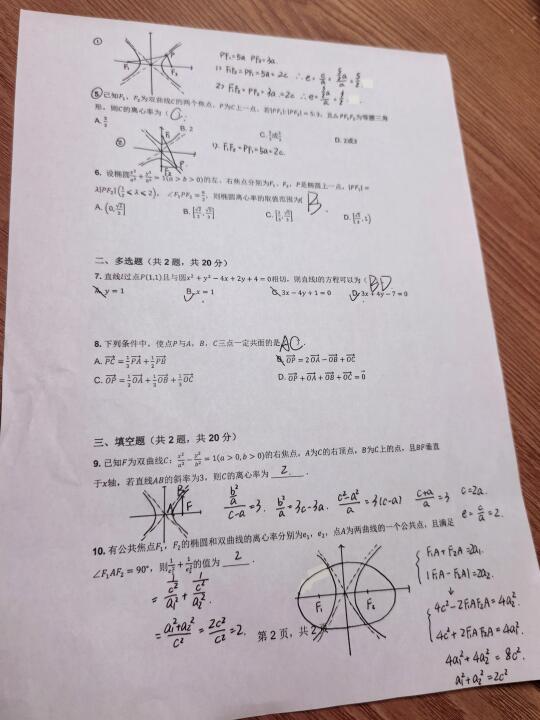 ①
PF₁=5a PF₂=3a.
1) F₁F₂=PF₁=5a=2c ∴e=c/a=(5/2 a)/a=5/2
2) F₁F₂=PF₂=3a=2c ∴e=(3/2 a)/a=3/2.
P
F₁ F₂
5.已知F₁、F₂为双曲线C的两个焦点,P为C上一点,若|PF₁|:|PF₂|=5:3,且△PF₁F₂为等腰三角
形,则C的离心率为(C.)
B. 2 D. 2或3
② 1). F₁F₂=PF₁=5a=2c.
6. 设椭圆x²/a²+y²/b²=1(a>b>0)的左、右焦点分别为F₁、F₂,P是椭圆上一点,|PF₁|=
λ|PF₂|(1/2≤λ≤2),∠F₁PF₂=π/2,则椭圆离心率的取值范围为( B.
二、多选题(共 2 题,共 20 分)
7. 直线l过点P(1,1)且与圆x²+y²−4x+2y+4=0相切,则直线l的方程可以为( BD
A. y=1 B. x=1 C. 3x−4y+1=0 D. 3x+4y−7=0
8. 下列条件中,使点P与A,B,C三点一定共面的是 AC.
A. PC=1/3PA+1/2PB B. OP=2OA−OB+OC
C. OP=1/3OA+1/3OB+1/3OC D. OP+OA+OB+OC=0
三、填空题(共 2 题,共 20 分)
9. 已知F为双曲线C:x²/a²−y²/b²=1(a>0,b>0)的右焦点,A为C的右顶点,B为C上的点,且BF垂直
于x轴,若直线AB的斜率为3,则C的离心率为 2 .
A B F
(b²/a)/(c-a)=3. b²/a=3c-3a. (c²-a²)/a=3(c-a) (c+a)/a=3 c=2a.
e=c/a=2.
10. 有公共焦点F₁,F₂的椭圆和双曲线的离心率分别为e₁,e₂,点A为两曲线的一个公共点,且满足
∠F₁AF₂=90°,则1/e₁²+1/e₂²的值为 2 .
=1/(c²/a₁²)+1/(c²/a₂²).
=(a₁²+a₂²)/c²=2c²/c²=2.
F₁ F₂
F₁A+F₂A=2a₁
|F₁A-F₂A|=2a₂.
4c²-2F₁A·F₂A=4a₂²
4c²+2F₁A·F₂A=4a₁²
4a₁²+4a₂²=8c²
a₁²+a₂²=2c²
第 2 页,共 2